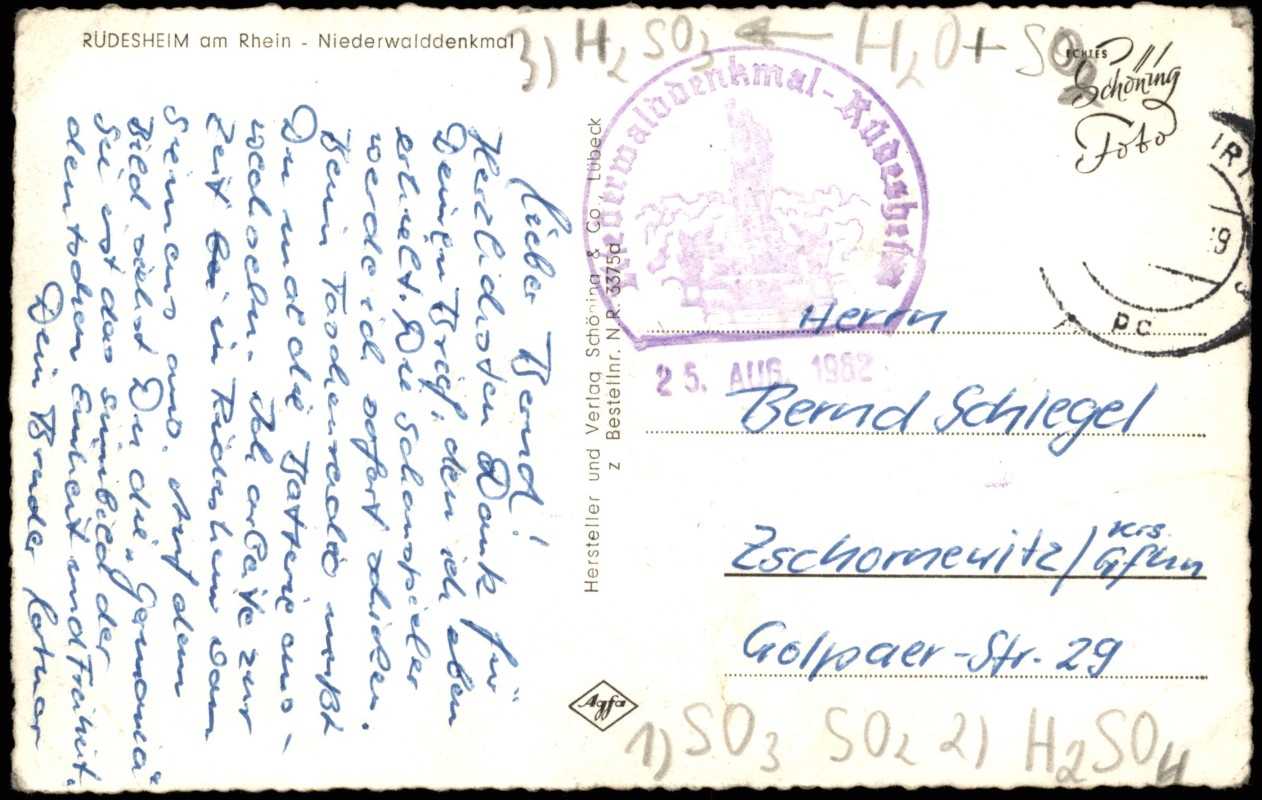 RÜDESHEIM am Rhein - Niederwalddenkmal
3) H₂SO₃ ← H₂O + SO₂
ECHTES
Schöning
Foto
Niederwalddenkmal-Rüdesheim
25. AUG. 1982
Lieber Bernd!
Herzlichsten Dank für
Deinen Brief, den ich eben
erhielt. Die Schauspieler
werde ich sofort schicken.
Beim Taschenradio mußt
Du mal die Batterie aus-
wechseln. Ich arbeite zur
Zeit in Rüdesheim vom
Siemens aus. Auf dem
Bild siehst Du die "Germania"
Sie ist das Sinnbild der
deutschen Einheit und Freiheit.
Dein Bruder Lothar
Hersteller und Verlag Schöning & Co., Lübeck
z Bestellnr. N.R. 3375a
Herrn
Bernd Schlegel
Zschornewitz/Krs. Gfhn
Golpaer-Str. 29
Agfa
1) SO₃ SO₂ 2) H₂SO₄